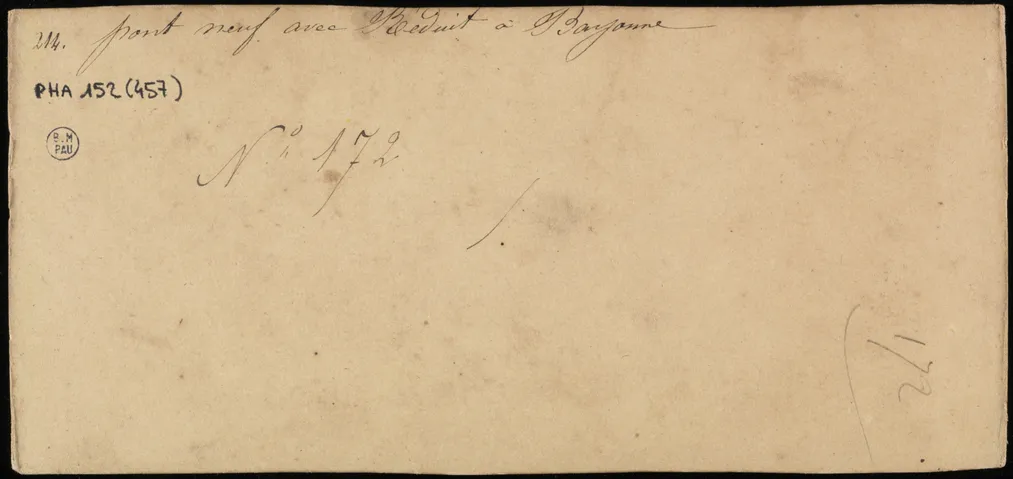 214. pont neuf avec Réduit à Bayonne
PHA 152 (457)
B.M
PAU
Nº 172
172